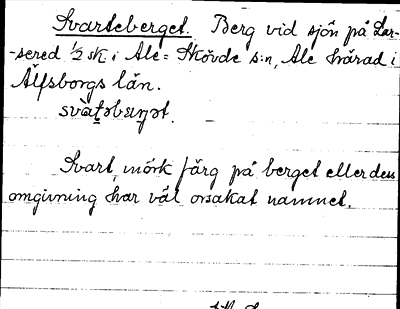 Svarteberget. Berg vid sjön på Lar-
-sered 1/2 sk i Ale-Skövde s:n, Ale härad i
Älfsborgs län.
svàṯəbærjət.
Svart, mörk färg på berget eller dess
omgivning har väl orsakat namnet.